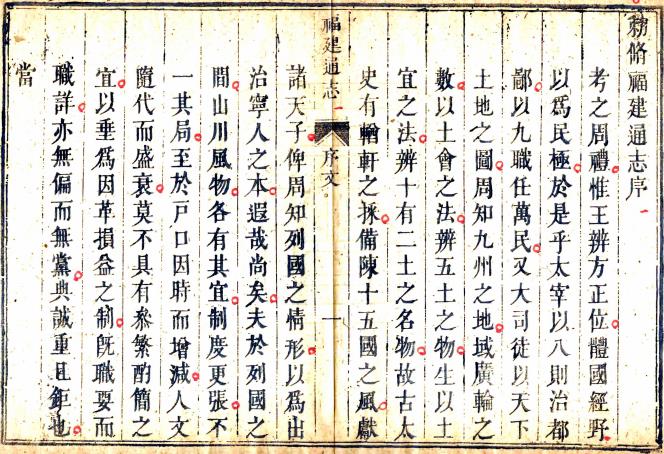 務脩福建通志序
考之周禮惟王辨方正位體國經野
以爲民極於是乎太宰以八則治都
鄙以九職任萬民又大司徒以天下
土地之圖周知九州之地域廣輪之
數以土會之法辨五土之物生以土
宜之法辨十有二土之名物故古太
史有輶軒之採備陳十五國之風獻
福建通志
序文
一
諸天子俾周知列國之情形以爲出
治寧人之本遐哉尚矣夫於列國之
間山川風物各有其宜制度更張不
一其局至於戸口因時而增減人文
隨代而盛衰莫不具有叅繁酌簡之
宜以垂爲因革損益之制旣職要而
職詳亦無偏而無黨典誠重且鉅也
當